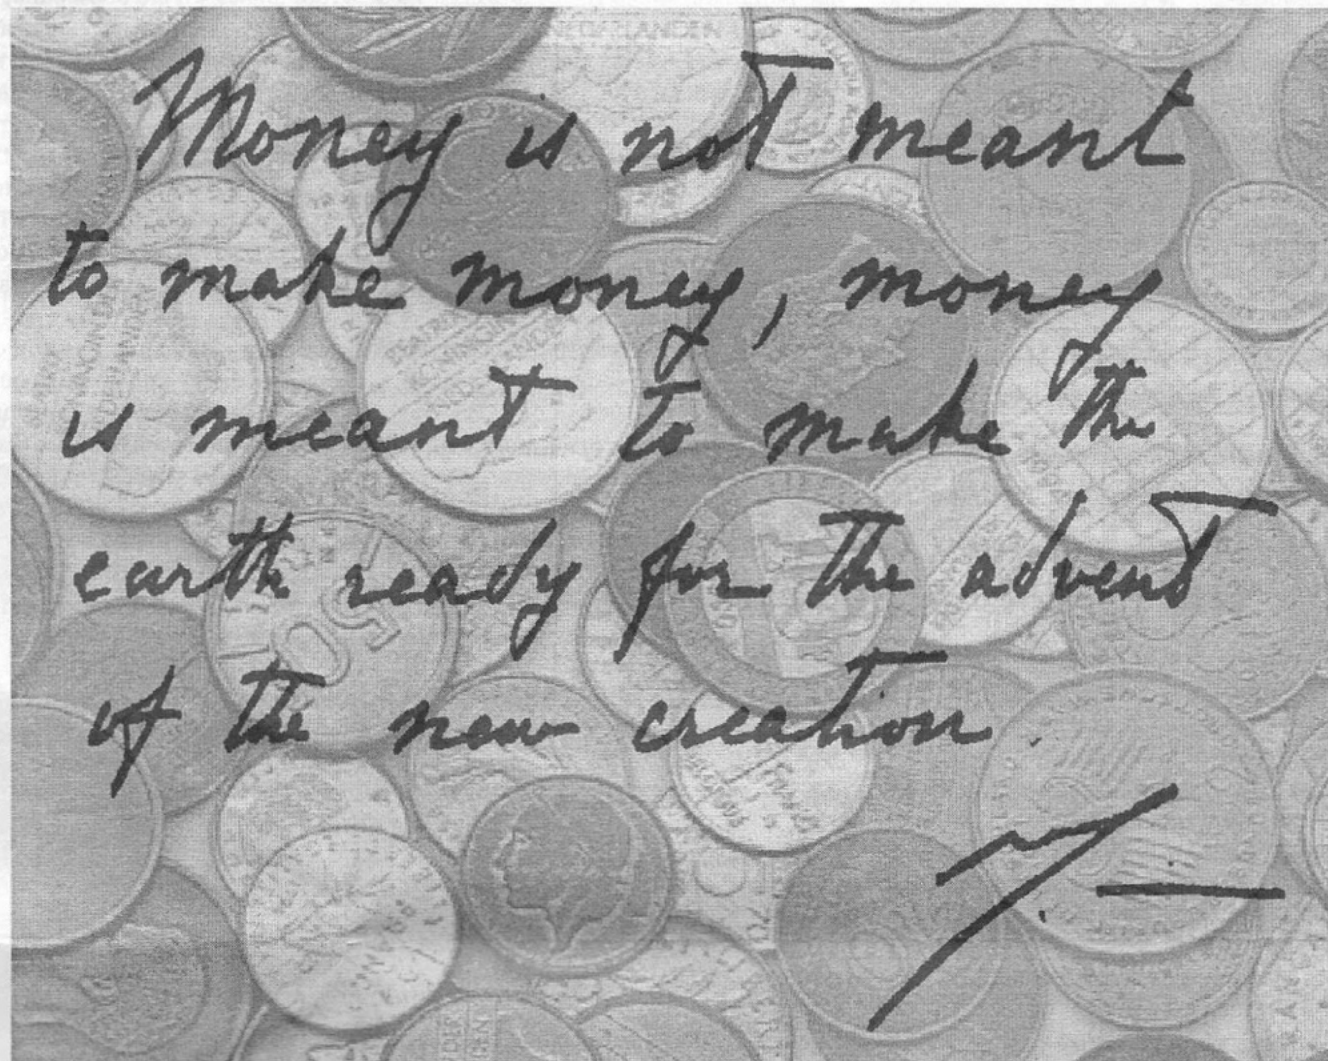 Money is not meant
to make money, money
is meant to make the
earth ready for the advent
of the new creation.